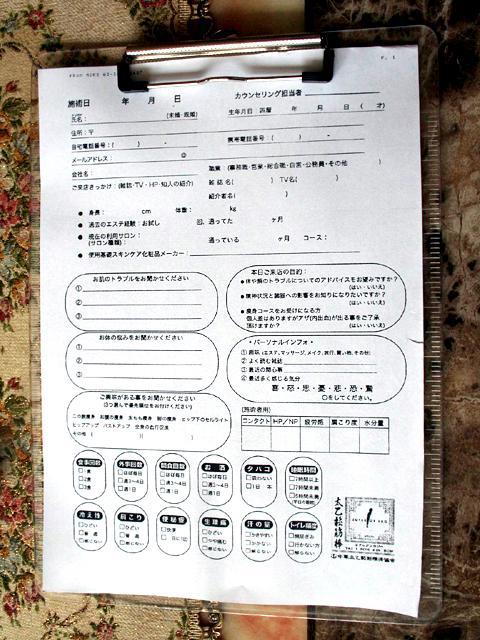 P. 1
施術日 年 月 日 カウンセリング担当者
氏名: (未婚・既婚) 生年月日 西暦 年 月 日 ( 才)
住所:〒
自宅電話番号:( ) - 携帯電話番号:( ) -
メールアドレス: @
会社名: 職業 (事務職・営業・総合職・自営・公務員・その他 )
ご来店きっかけ:(雑誌・TV・HP・知人の紹介) 雑誌名( ) TV名( )
紹介者名( )
● 身長: cm 体重: kg
● 過去のエステ経験:お試し 回、通ってた ヶ月
● 現在の利用サロン: 通っている ヶ月 コース:
(サロン種類)
● 使用基礎スキンケア化粧品メーカー:
お肌のトラブルをお聞かせください
①
②
③
本日ご来店の目的:
●体や顔のトラブルについてのアドバイスをお望みですか?
(はい・いいえ)
●精神状況と臓器への影響をお知りになりたいですか?
(はい・いいえ)
●痩身コースをお受けになる方
個人差はありますがアザ(内出血)が出る事をご了承
頂けますか? (はい・いいえ)
お体の悩みをお聞かせください
①
②
③
・パーソナルインフォ・
① 趣味 (エステ,マッサージ,メイク,旅行,買い物,その他)
② よく読む雑誌
③ 最近の関心事
④ 最近多く感じる気分
喜・怒・思・憂・悲・恐・驚
○をしてください。
ご興味がある事をお聞かせください
(3つ選んで優先順位をお付けください)
二の腕痩身 お腹の痩身 太もも痩身 脚の痩身 ヒップ下のセルライト
ヒップアップ バストアップ 全身の血行促進
その他 ( )( )
(施術者用)
コンタクト HP/NP 疲労感 肩こり度 水分量
食事回数 外食回数 間食回数 お酒 タバコ 睡眠時間
冷え性 肩こり 便秘症 生理痛 汗の量 トイレ頻度